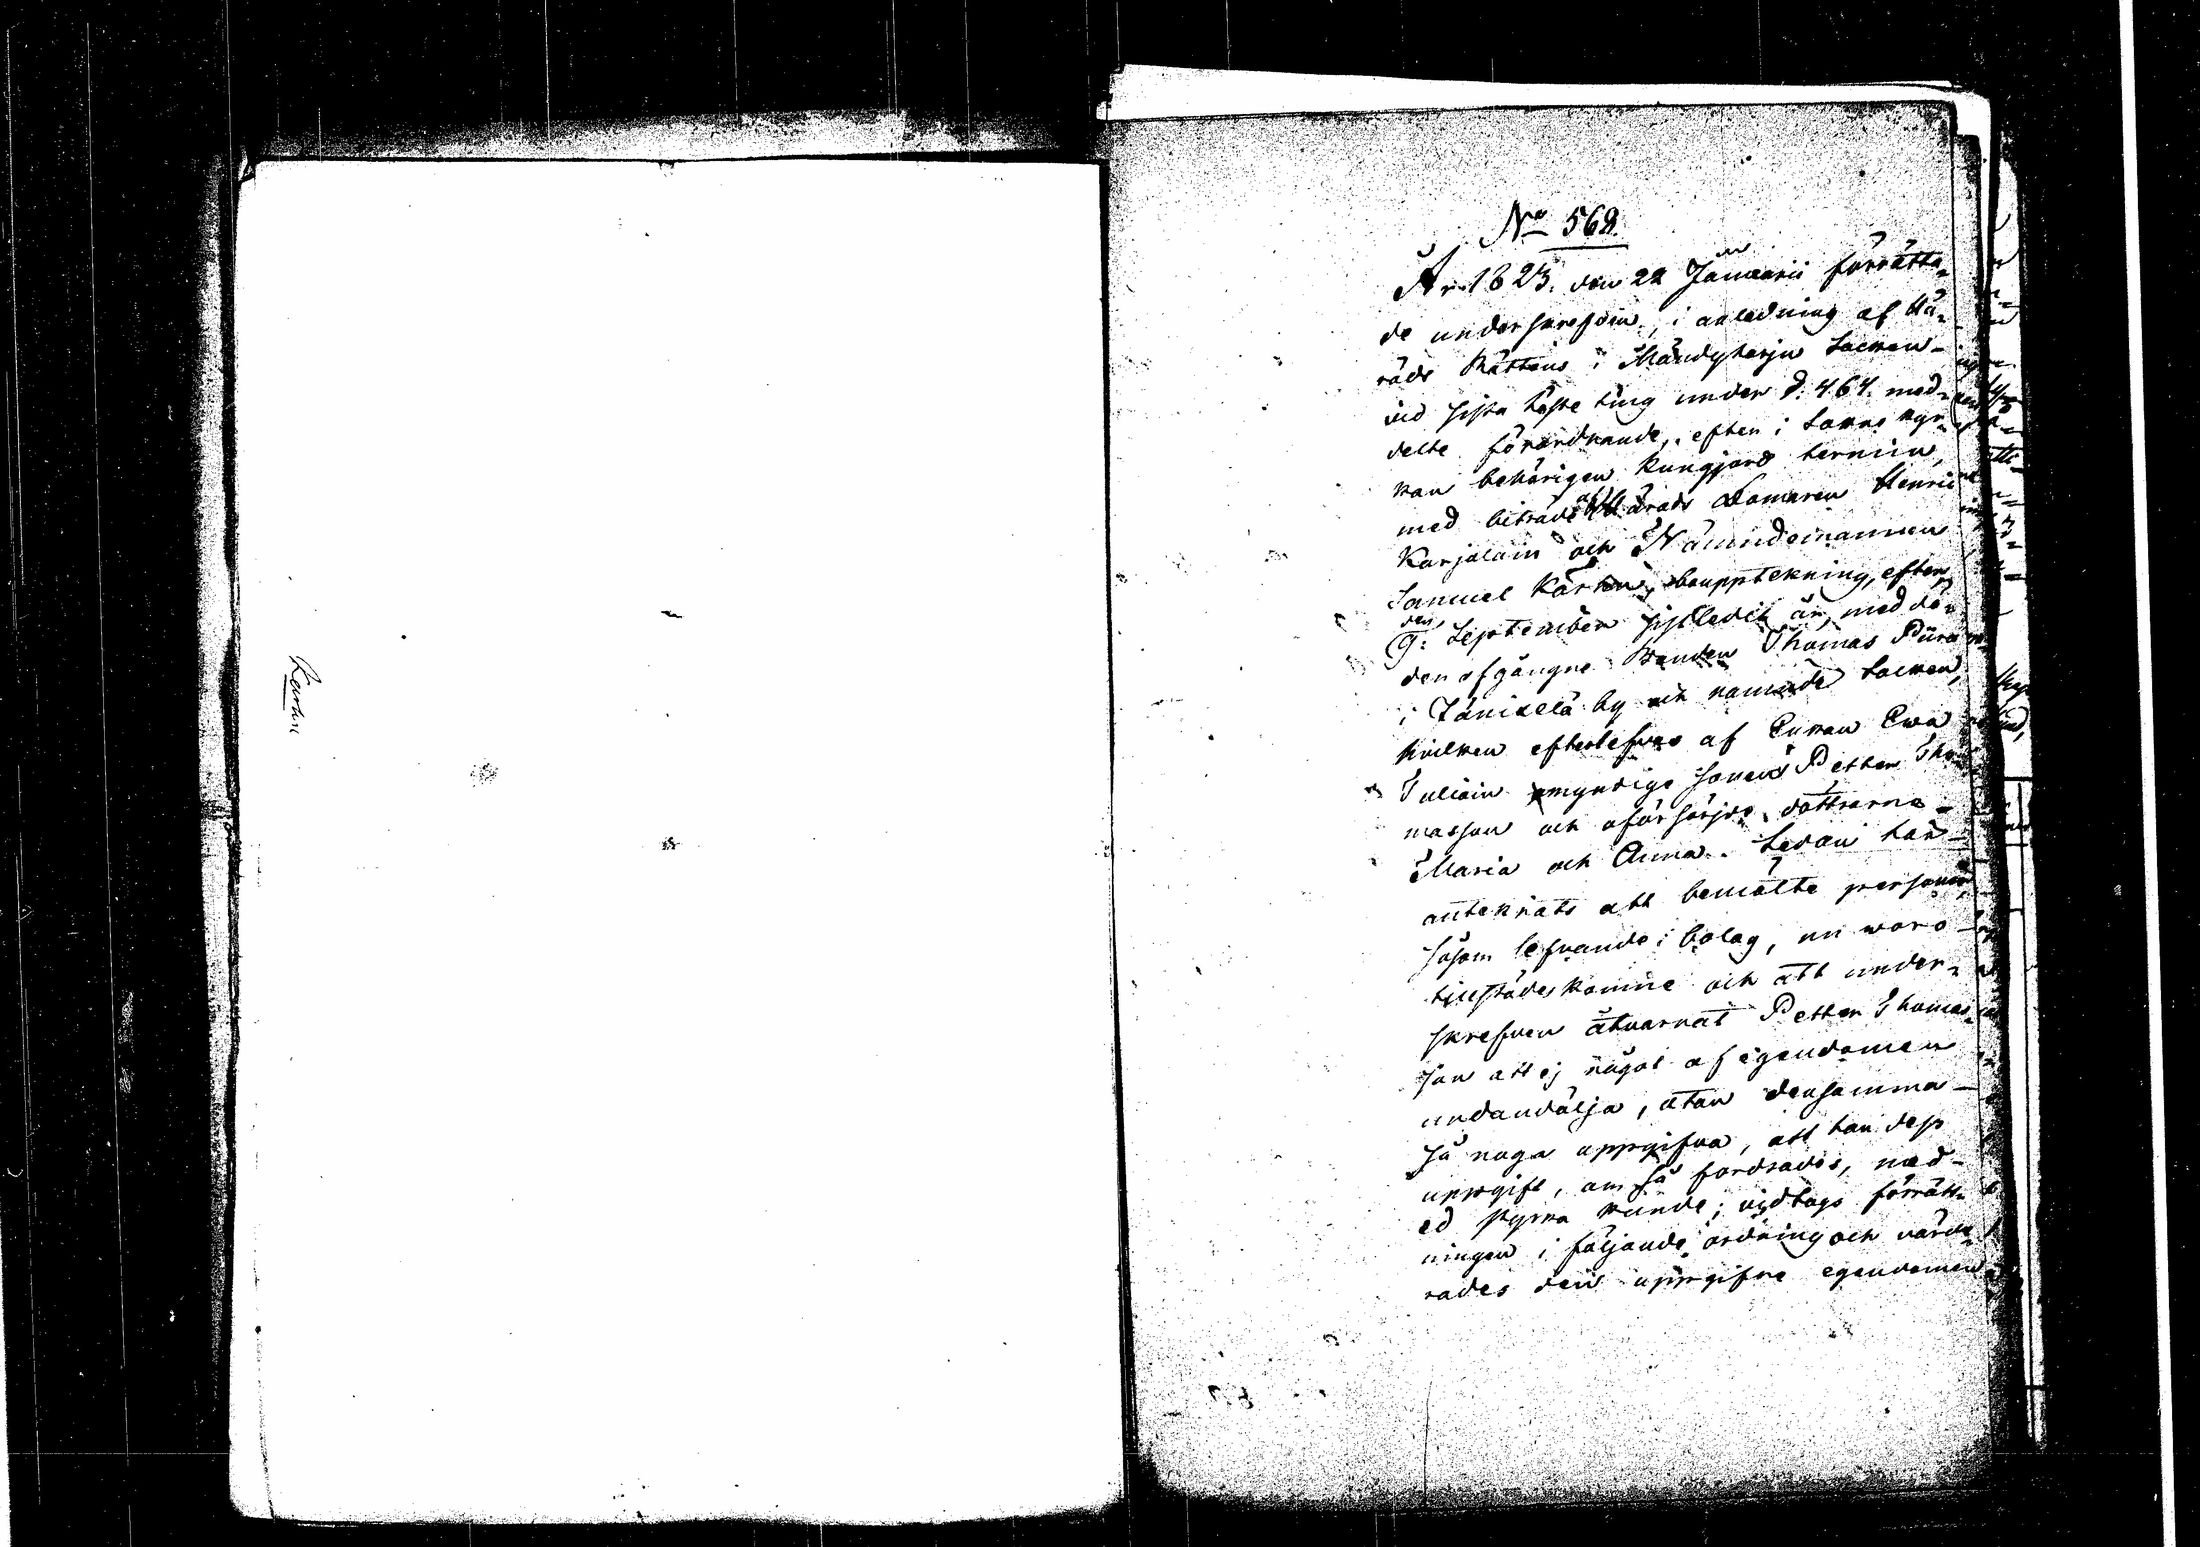 Karhu
No 568.
År 1823. den 22 Januarii förrätta-
de underskrefven, i anledning af Hä-
rads Rättens i Mändyharju Socken
vid sista höste ting under §. 464. med-
delte förordnande, efter i Sokne kyr-
kan behörigen kungjord termin,
med biträde af Härads Domaren Henric
Karjalain och Nämndemannen
Samuel Karhu, bouppteckning, efter
den 9: September sistledit år, med dö-
den afgångne Bonden Thomas Pura
i Jänicelä by och nämnde Socken,
hvilken efterlefves af Enkan Ewa
Tuliain omyndige sonen Petter Tho-
masson och oförsörjde döttrarna
Maria och Anna. Sedan har
anteknats att bemälte personer,
såsom lefvande i bolag, nu woro
tillstädes komne och att under-
skrefven åtvarnat Petter Thomas-
son att ej något af egendomen
undandölja, utan densamma
så noga uppgifva, att han dess
uppgift, om så fordrades, med
ed styrka kunde; vidtogs förrätt-
ningen i följande ordning och värde-
rades den uppgifne egendomen